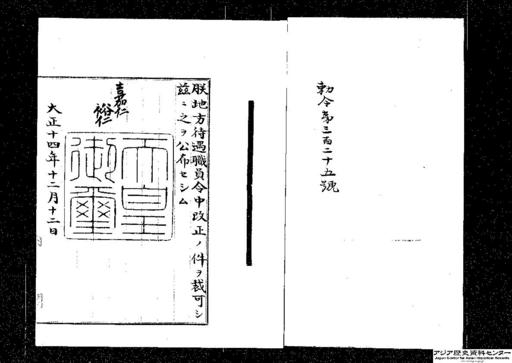 勅令第三百二十五號
朕地方待遇職員令中改正ノ件ヲ裁可シ
玆ニ之ヲ公布セシム
嘉仁
裕仁
天皇御璽
大正十四年十二月十二日
アジア歴史資料センター
Japan Center for Asian Historical Records